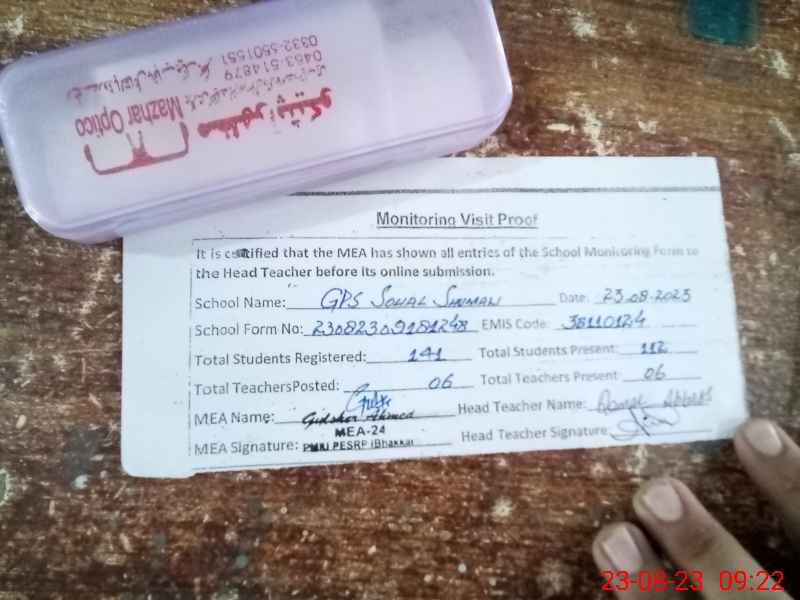 Mazhar Optico
0453-514879
0332-5501551
Monitoring Visit Proof
It is certified that the MEA has shown all entries of the School Monitoring Form to
the Head Teacher before its online submission.
School Name: GPS Sohal Shumali Date: 23.08-2023
School Form No: 23082309181248 EMIS Code: 38110124
Total Students Registered: 141 Total Students Present: 112
Total TeachersPosted: 06 Total Teachers Present: 06
MEA Name: Ahmed Head Teacher Name: Abbas
MEA-24
MEA Signature: PMIU PESRP (Bhakkar Head Teacher Signature:
23-08-23 09:22